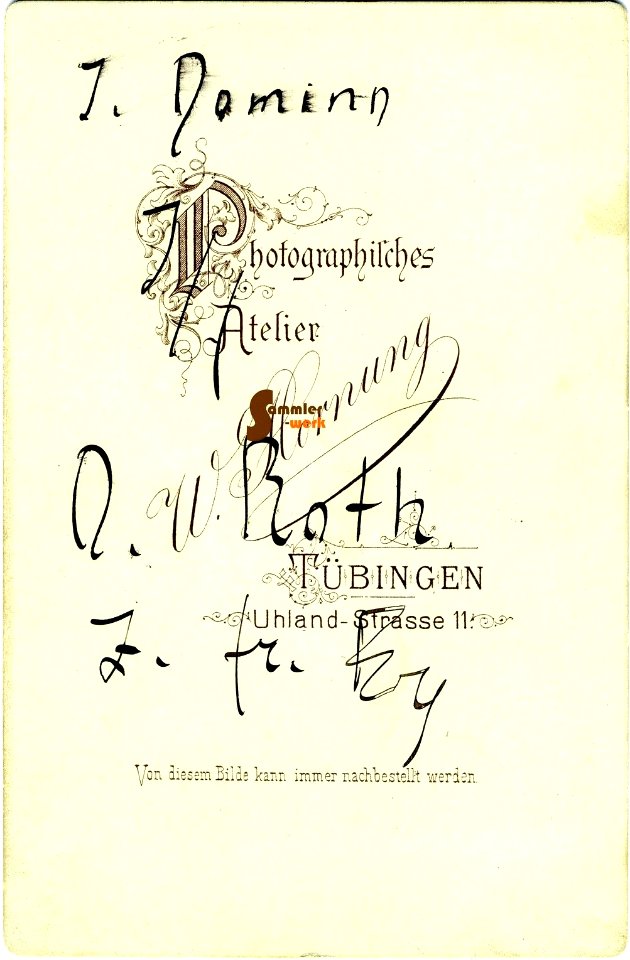 Photographisches
Atelier
Sammler
-werk
W. Hornung
A. Roth.
TÜBINGEN
Uhland-Strasse 11.
Z. fr. 
Von diesem Bilde kann immer nachbestellt werden.